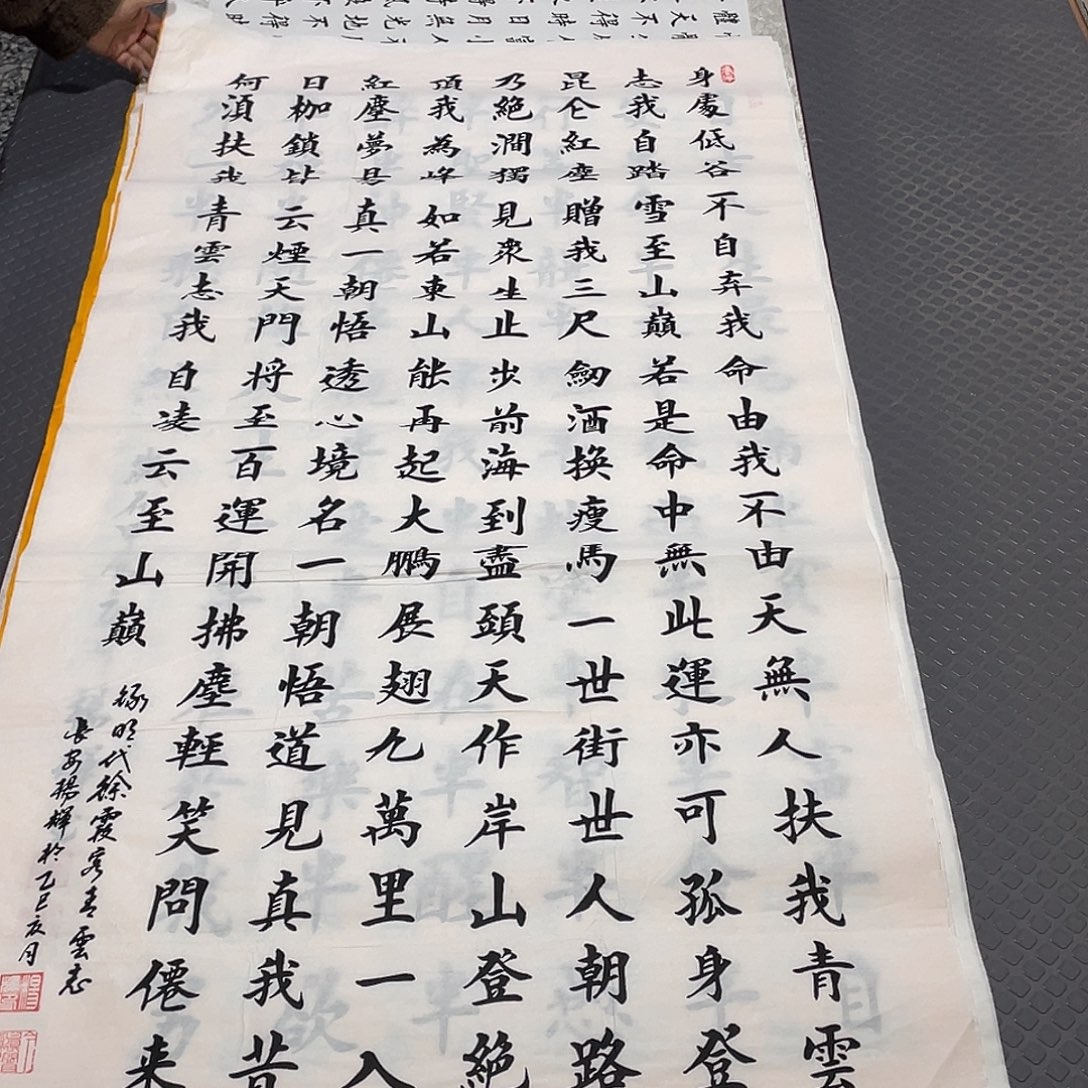 身處低谷不自弃我命由我不由天無人扶我青雲
志我自踏雪至山巔若是命中無此運亦可孤身登
昆仑紅塵贈我三尺劒酒換瘦馬一世街世人朝路
乃絕澗獨見衆生止步前海到盡頭天作岸山登絕
頂我為峰如若東山能再起大鵬展翅九萬里一入
紅塵夢是真一朝悟透心境名一朝悟道見真我昔
日枷鎖皆云煙天門将至百運開拂塵輕笑問僊来
何湏扶我青雲志我自凌云至山巔
錄明代徐霞客青雲志
長安楊輝於乙巳夏月